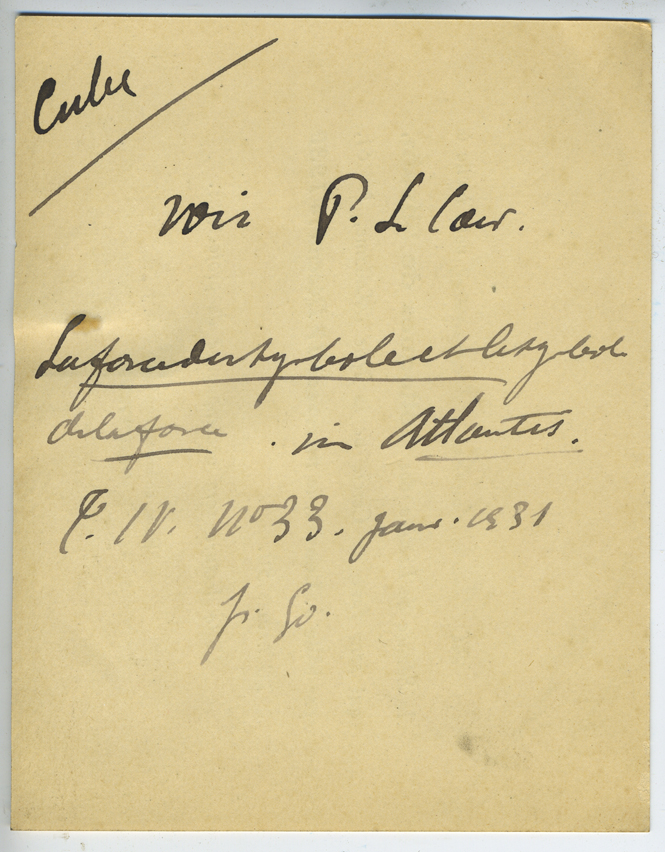 Cube
voir P. Le Cour.
La force du symbole et le symbole
de la force . in Atlantis.
T. IV. No 33. janv. 1931
p. 60.